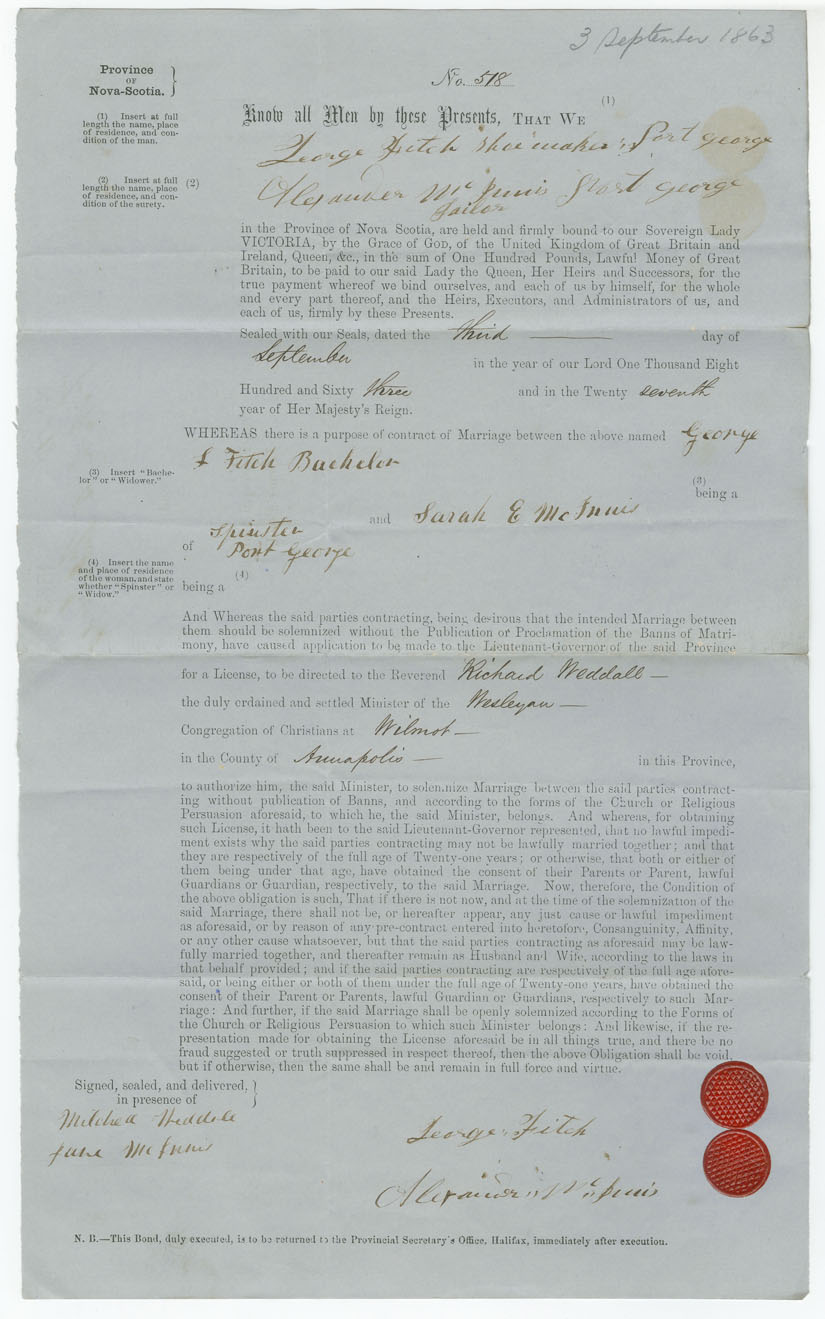 3 September 1863
Province
OF
Nova-Scotia.
No. 518
(1)
Know all Men by these Presents, THAT WE
(1) Insert at full
length the name, place
of residence, and con-
dition of the man.
George Fitch Shoemaker Port george
(2) Insert at full
length the name, place
of residence, and con-
dition of the surety.
(2)
Alexander Mc Innis Port george
Tailor
in the Province of Nova Scotia, are held and firmly bound to our Sovereign Lady
VICTORIA, by the Grace of GOD, of the United Kingdom of Great Britain and
Ireland, Queen, &c., in the sum of One Hundred Pounds, Lawful Money of Great
Britain, to be paid to our said Lady the Queen, Her Heirs and Successors, for the
true payment whereof we bind ourselves, and each of us by himself, for the whole
and every part thereof, and the Heirs, Executors, and Administrators of us, and
each of us, firmly by these Presents.
Sealed with our Seals, dated the third day of
September in the year of our Lord One Thousand Eight
Hundred and Sixty three and in the Twenty seventh
year of Her Majesty's Reign.
WHEREAS there is a purpose of contract of Marriage between the above named George
Fitch Bachelor
(3) Insert "Bache-
lor" or "Widower."
(3)
being a
and Sarah E McInnis
Spinster
of Port George
(4) Insert the name
and place of residence
of the woman, and state
whether "Spinster" or
"Widow."
(4)
being a
And Whereas the said parties contracting, being desirous that the intended Marriage between
them should be solemnized without the Publication or Proclamation of the Banns of Matri-
mony, have caused application to be made to the Lieutenant-Governor of the said Province
for a License, to be directed to the Reverend Richard Weddall —
the duly ordained and settled Minister of the Wesleyan —
Congregation of Christians at Wilmot —
in the County of Annapolis — in this Province,
to authorize him, the said Minister, to solemnize Marriage between the said parties contract-
ing without publication of Banns, and according to the forms of the Church or Religious
Persuasion aforesaid, to which he, the said Minister, belongs. And whereas, for obtaining
such License, it hath been to the said Lieutenant-Governor represented, that no lawful impedi-
ment exists why the said parties contracting may not be lawfully married together; and that
they are respectively of the full age of Twenty-one years; or otherwise, that both or either of
them being under that age, have obtained the consent of their Parents or Parent, lawful
Guardians or Guardian, respectively, to the said Marriage. Now, therefore, the Condition of
the above obligation is such, That if there is not now, and at the time of the solemnization of the
said Marriage, there shall not be, or hereafter appear, any just cause or lawful impediment
as aforesaid, or by reason of any pre-contract entered into heretofore, Consanguinity, Affinity,
or any other cause whatsoever, but that the said parties contracting as aforesaid may be law-
fully married together, and thereafter remain as Husband and Wife, according to the laws in
that behalf provided; and if the said parties contracting are respectively of the full age afore-
said, or being either or both of them under the full age of Twenty-one years, have obtained the
consent of their Parent or Parents, lawful Guardian or Guardians, respectively to such Mar-
riage: And further, if the said Marriage shall be openly solemnized according to the Forms of
the Church or Religious Persuasion to which such Minister belongs: And likewise, if the re-
presentation made for obtaining the License aforesaid be in all things true, and there be no
fraud suggested or truth suppressed in respect thereof, then the above Obligation shall be void,
but if otherwise, then the same shall be and remain in full force and virtue.
Signed, sealed, and delivered,
in presence of
Mitchell Weddall
Jane McInnis
George Fitch
Alexander Mc Innis
N. B.—This Bond, duly executed, is to be returned to the Provincial Secretary's Office, Halifax, immediately after execution.